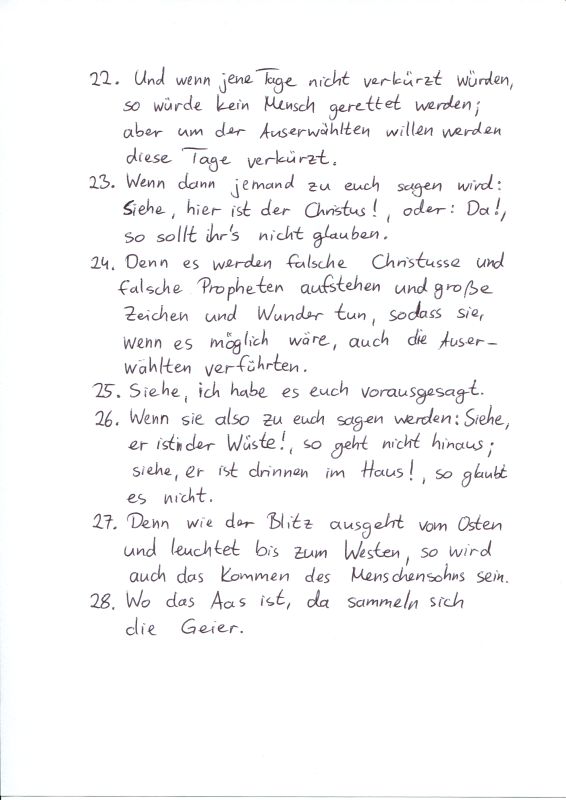 22. Und wenn jene Tage nicht verkürzt würden,
so würde kein Mensch gerettet werden;
aber um der Auserwählten willen werden
diese Tage verkürzt.
23. Wenn dann jemand zu euch sagen wird:
Siehe, hier ist der Christus!, oder: Da!,
so sollt ihr's nicht glauben.
24. Denn es werden falsche Christusse und
falsche Propheten aufstehen und große
Zeichen und Wunder tun, sodass sie,
wenn es möglich wäre, auch die Auser-
wählten verführten.
25. Siehe, ich habe es euch vorausgesagt.
26. Wenn sie also zu euch sagen werden: Siehe,
er ist in der Wüste!, so geht nicht hinaus;
siehe, er ist drinnen im Haus!, so glaubt
es nicht.
27. Denn wie der Blitz ausgeht vom Osten
und leuchtet bis zum Westen, so wird
auch das Kommen des Menschensohns sein.
28. Wo das Aas ist, da sammeln sich
die Geier.